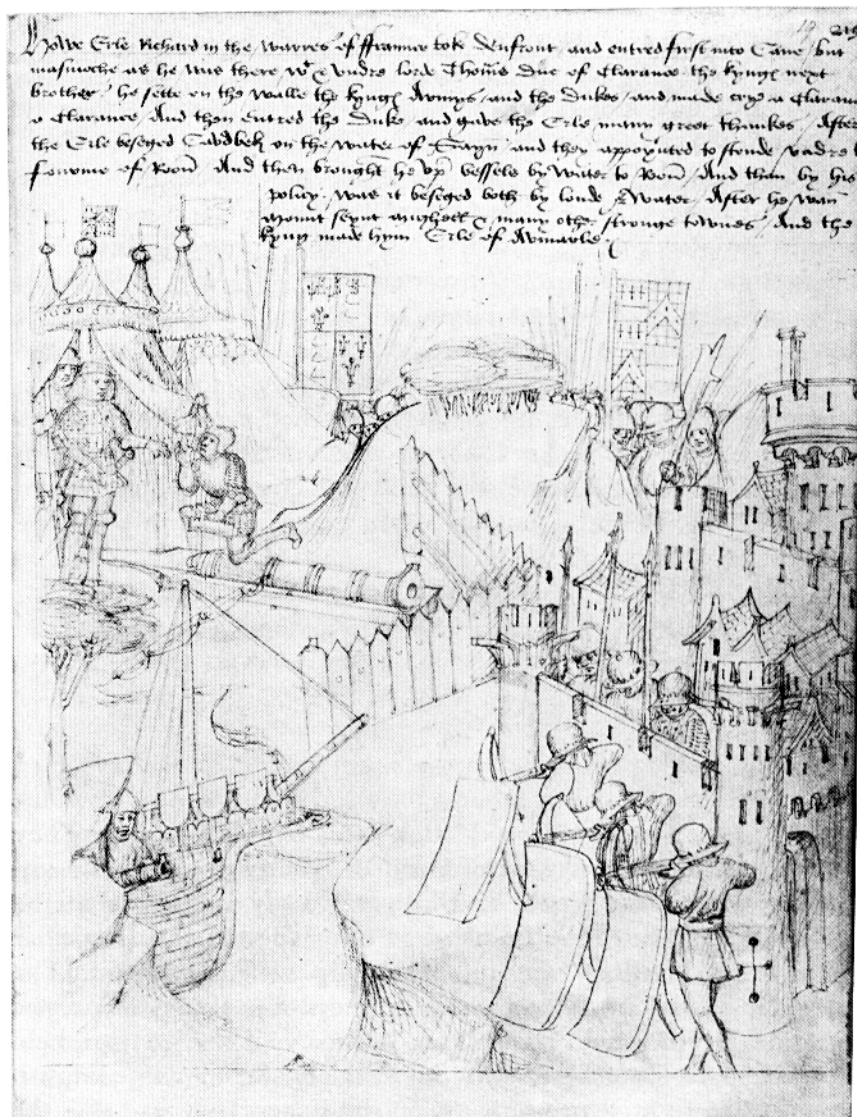 Howe Erle Richard in the warres of ffraunce tok Denfront and entred first into Cane but
masmoche as he was there wt & undre lorde Thom̄s Duc of Clarance the kyngꝭ next
brother he sette on the walle the kyngꝭ Armys and the Dukes and made crye a Claranc
a Clarance And then entred the Duke and gave the Erle many greet thankes After
the Erle beseged Cawdbek on the water of and they appoynted to stonde undre t
of Roon̄ And then brought he up vessels by water to Ron̄ And than by his
policy was it beseged both by londe & Water After he wan̄
mount seynt & many othr stronge townes And the
kyng made hym Erle of Awmarle